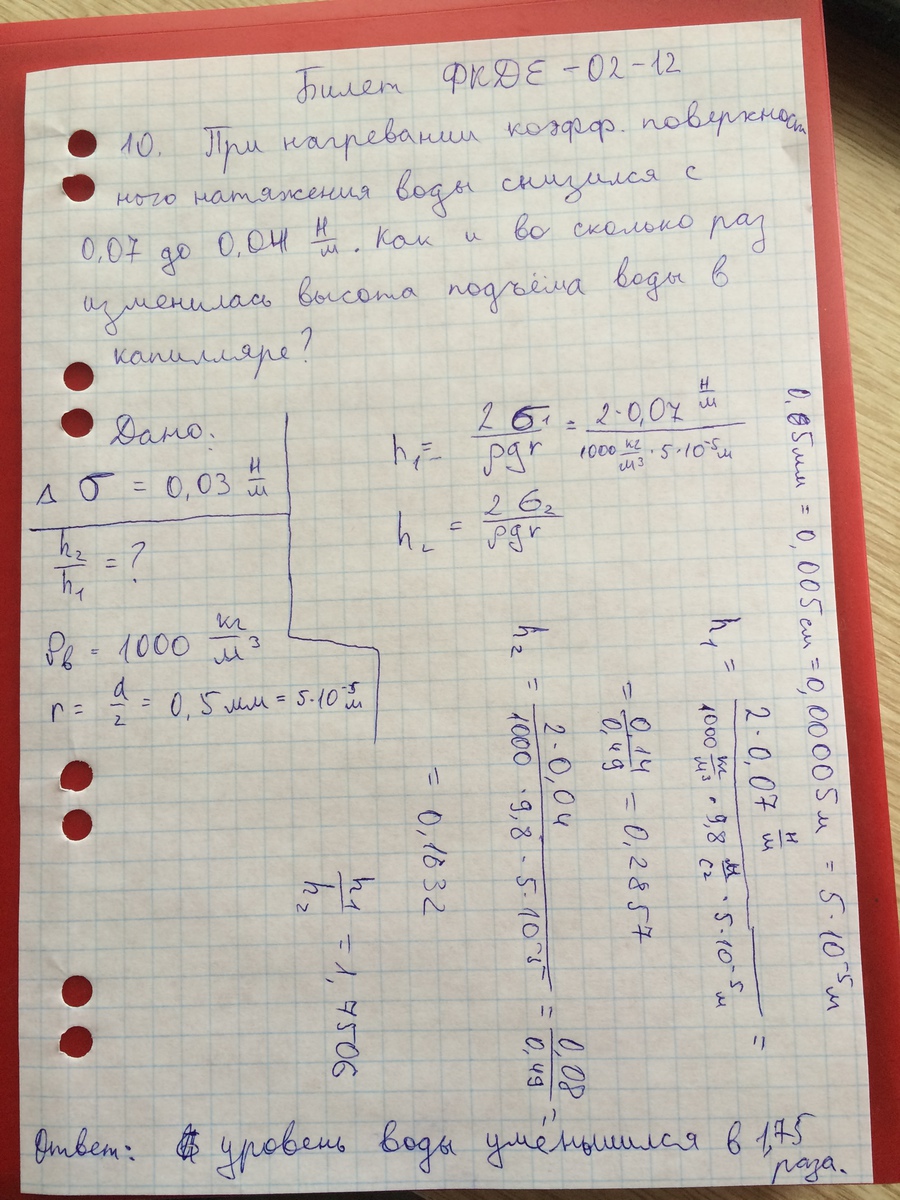 Билет ФКДЕ-02-12
10. При нагревании коэфф. поверхност
ного натяжения воды снизился с
0,07 до 0,04 Н/м. Как и во сколько раз
изменилась высота подъёма воды в
капилляре?
Дано:
Δ σ = 0,03 Н/м
h₂/h₁ = ?
ρв = 1000 кг/м³
r = d/2 = 0,5 мм = 5·10⁻⁵ м
h₁ = 2σ₁/ρgr = 2·0,07 Н/м / 1000 кг/м³ · 5·10⁻⁵ м
h₂ = 2σ₂/ρgr
0,05 мм = 0,005 см = 0,00005 м = 5·10⁻⁵ м
h₁ = 2·0,07 Н/м / 1000 кг/м³ · 9,8 м/с² · 5·10⁻⁵ м =
= 0,14/0,49 = 0,2857
h₂ = 2·0,04 / 1000·9,8·5·10⁻⁵ = 0,08/0,49 =
= 0,1632
h₁/h₂ = 1,7506
Ответ: уровень воды уменьшился в 1,75
раза.